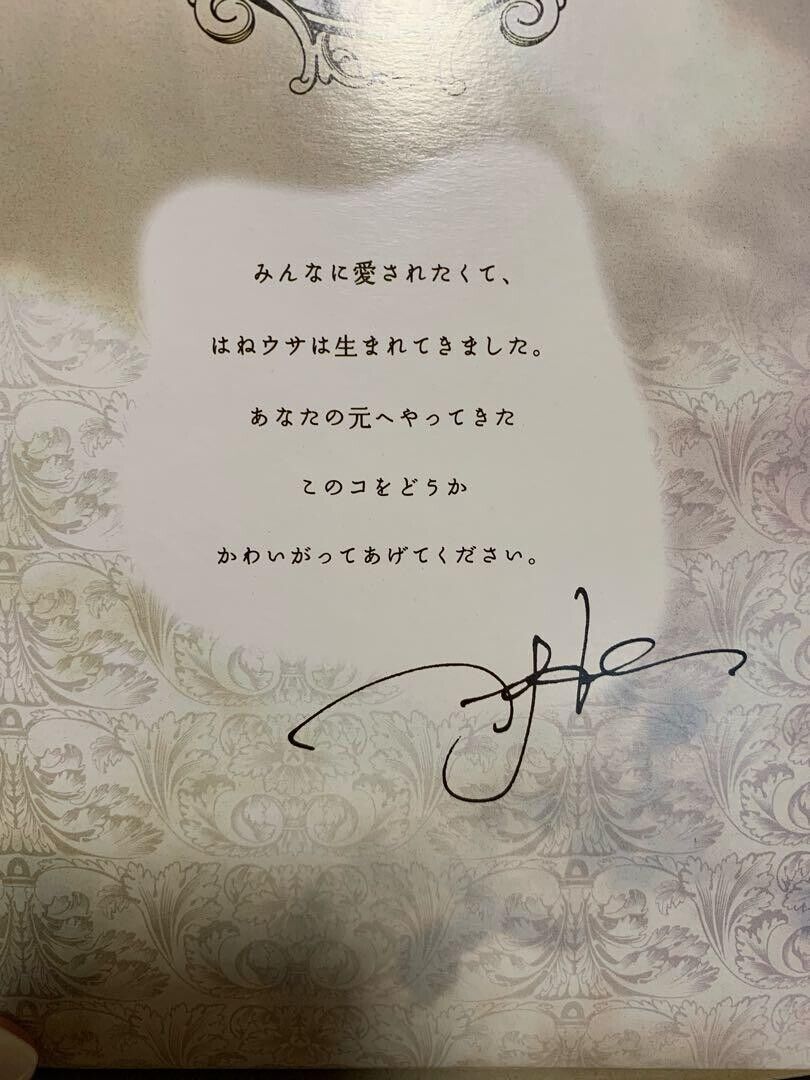 みんなに愛されたくて、
はねウサは生まれてきました。
あなたの元へやってきた
このコをどうか
かわいがってあげてください。